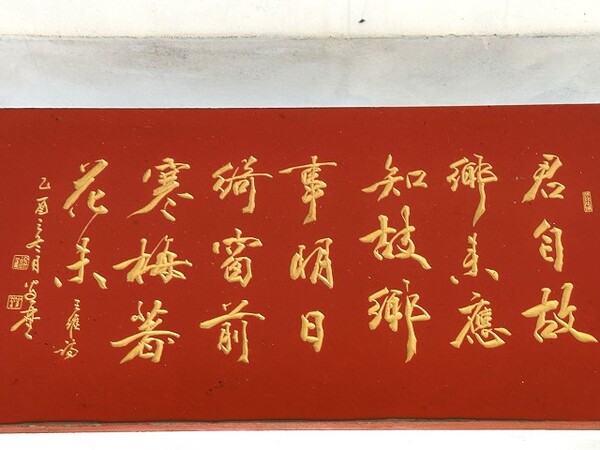 君自故
鄉来應
知故鄉
事明日
綺窗前
寒梅著
花未
王維詩
乙酉 月